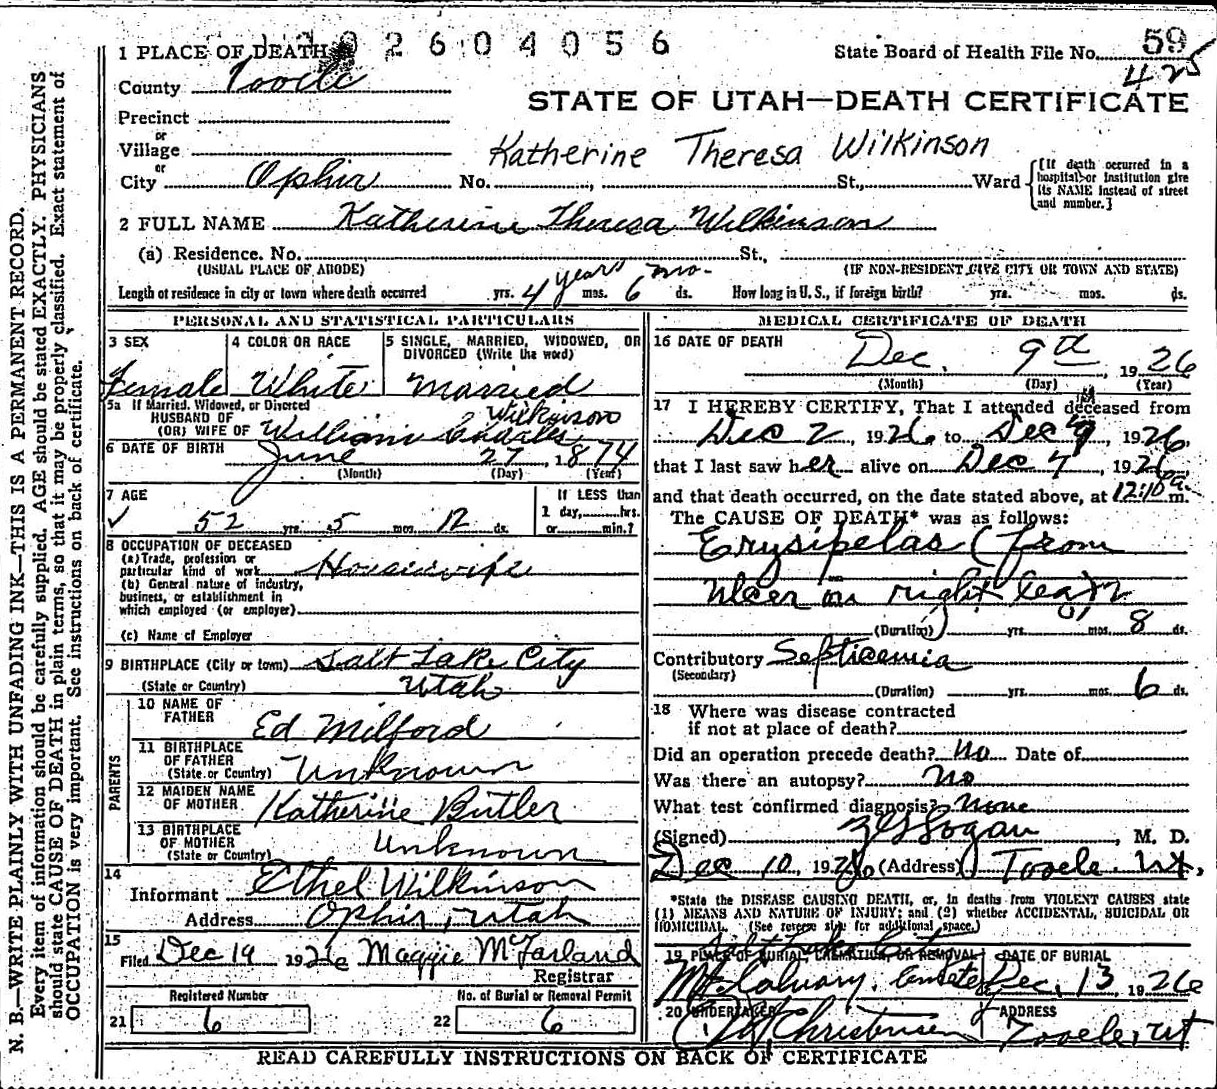 N. B.—WRITE PLAINLY WITH UNFADING INK—THIS IS A PERMANENT RECORD.
Every item of information should be carefully supplied. AGE should be stated EXACTLY. PHYSICIANS
should state CAUSE OF DEATH in plain terms, so that it may be properly classified. Exact statement of
OCCUPATION is very important. See instructions on back of certificate.
2604056
1 PLACE OF DEATH
State Board of Health File No. 59
425
County Tooele
STATE OF UTAH—DEATH CERTIFICATE
Precinct
or
Village
Katherine Theresa Wilkinson
or
City Ophir No. , St., Ward
[If death occurred in a
hospital or institution give
its NAME instead of street
and number.]
2 FULL NAME Katherine Theresa Wilkinson
(a) Residence. No. St.,
(USUAL PLACE OF ABODE) (IF NON-RESIDENT GIVE CITY OR TOWN AND STATE)
years mo.
Length of residence in city or town where death occurred yrs. 4 mos. 6 ds. How long in U. S., if foreign birth? yrs. mos. ds.
PERSONAL AND STATISTICAL PARTICULARS
3 SEX
Female
4 COLOR OR RACE
White
5 SINGLE, MARRIED, WIDOWED, OR
DIVORCED (Write the word)
Married
5a If Married, Widowed, or Divorced
HUSBAND OF Wilkinson
(OR) WIFE OF William Charles
6 DATE OF BIRTH June 27, 1874
(Month) (Day) (Year)
7 AGE
52 yrs. 5 mos. 12 ds.
If LESS than
1 day, hrs.
or min.?
8 OCCUPATION OF DECEASED
(a) Trade, profession or
particular kind of work Housewife
(b) General nature of industry,
business, or establishment in
which employed (or employer)
(c) Name of Employer
9 BIRTHPLACE (City or town) Salt Lake City
(State or Country) Utah
PARENTS
10 NAME OF
FATHER Ed Milford
11 BIRTHPLACE
OF FATHER
(State or Country) Unknown
12 MAIDEN NAME
OF MOTHER Katherine Butler
13 BIRTHPLACE
OF MOTHER
(State or Country) Unknown
14
Informant Ethel Wilkinson
Address Ophir, Utah
15
Filed Dec 19 1926 Maggie McFarland
Registrar
Registered Number No. of Burial or Removal Permit
21 6 22 6
MEDICAL CERTIFICATE OF DEATH
16 DATE OF DEATH
Dec. 9th, 1926
(Month) (Day) (Year)
17 I HEREBY CERTIFY, That I attended deceased from
Dec 2, 1926, to Dec 9, 1926
that I last saw her alive on Dec 7, 1926
and that death occurred, on the date stated above, at 12:10 a.m.
The CAUSE OF DEATH* was as follows:
Erysipelas (from
ulcer on right leg)
(Duration) yrs. mos. 8 ds.
Contributory Septicemia
(Secondary)
(Duration) yrs. mos. 6 ds.
18 Where was disease contracted
if not at place of death?
Did an operation precede death? no Date of
Was there an autopsy? no
What test confirmed diagnosis? none
(Signed) , M. D.
Dec 10, 1926 (Address) Tooele, Ut.
*State the DISEASE CAUSING DEATH, or, in deaths from VIOLENT CAUSES state
(1) MEANS AND NATURE OF INJURY; and (2) whether ACCIDENTAL, SUICIDAL OR
HOMICIDAL. (See reverse side for additional space.)
Salt Lake City
19 PLACE OF BURIAL, CREMATION OR REMOVAL DATE OF BURIAL
Mt. Calvary Dec. 13 1926
20 UNDERTAKER ADDRESS
Christensen Tooele, Ut
READ CAREFULLY INSTRUCTIONS ON BACK OF CERTIFICATE